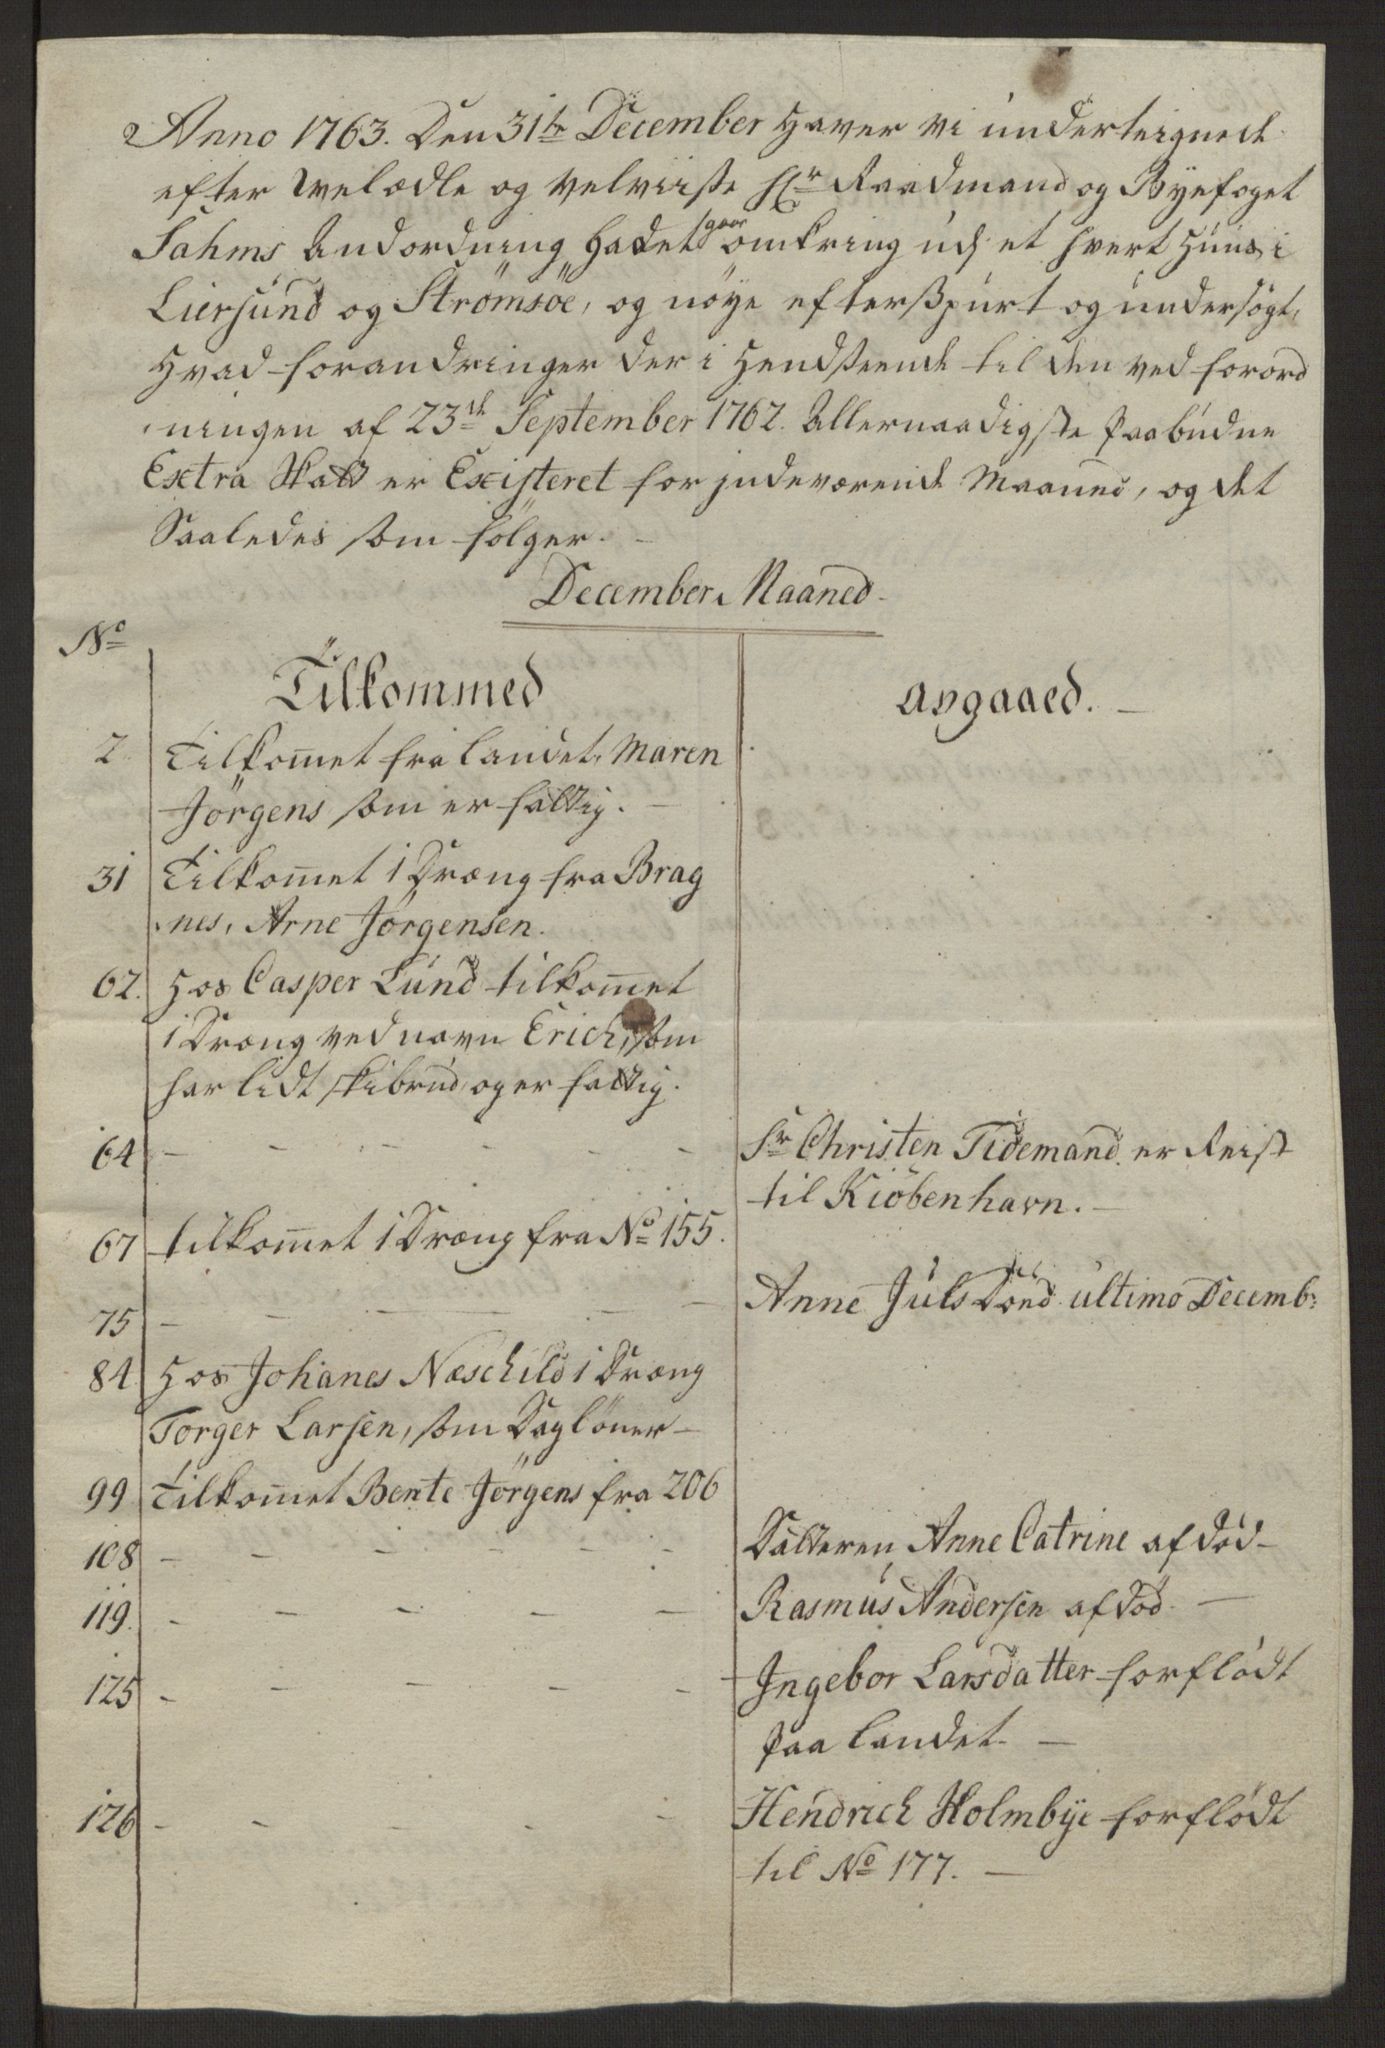 Anno 1763. Den 31te December Haver vi underteignede
efter Welædle og velviisse Hr Raadmand og Byefoget
Sahms Andordning Hadet gaar omkring udj et hvert Huus i
Liersund og Strömsöe, og nöye efterspurt og undersögt,
Hvad forandringer der i Hendseende til den ved forord
ningen af 23de September 1762. Allernaadigste Paabudne
Extra Skatt er Existeret for jndeværende Maaned, og det
Saaledes som fölger.
December Maaned
No
Tilkommed
avgaaed.
2 Tilkom̅et fra Landet, Maren
Jörgens som er fattig.
31 Tilkom̅et 1 Dræng fra Brag
nes, Arne Jörgensen.
62. Hos Casper Lund tilkom̅et
1 Dræng ved navn Erich, som
har lidt skibrud og er fattig.
64 - - - - - Sr Christen Tidemand er Reist
til Kiöbenhavn.
67 tilkom̅et 1 Dræng fra No 155.
75 - - - - - Anne Juels Död ultimo Decemb:
84 Hos Johanes Næschild 1 Dræng
Torger Larsen, som Daglöner
99 Tilkom̅et Bente Jörgens fra 206
108 - - - - - Datteren Anne Catrine afdöd
119. - - - - - Rasmus Andersen afdöd
125 - - - - - Ingebor Larsdatter forflödt
paa Landet.
126 - - - - - Hendrich Holmbye forflödt
til No 177.